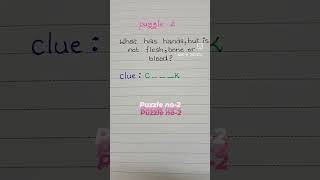 puzzle-2
What has hands, but is
not flesh, bone or
blood?
clue: C _ _ _ K
Puzzle no-2
Puzzle no-2